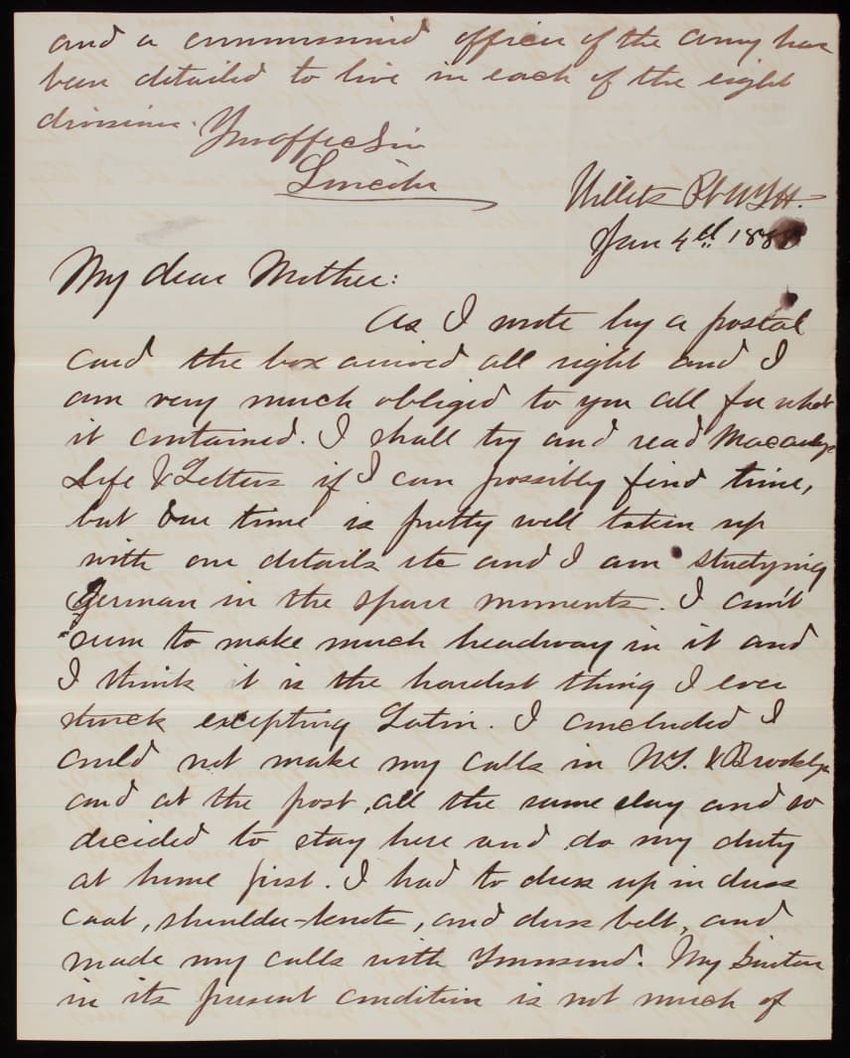 and a commissioned officer of the army has
been detailed to live in each of the eight
divisions. Your aff. Son
Lincoln
Willets Pt N.Y.H.
Jan 4th 188
My dear Mother:
As I wrote by a postal
card the box arrived all right and I
am very much obliged to you all for what
it contained. I shall try and read Macaulay's
Life & Letters if I can possibly find time,
but our time is pretty well taken up
with our details etc and I am studying
German in the spare moments. I can't
seem to make much headway in it and
I think it is the hardest thing I ever
struck excepting Latin. I concluded I
could not make my calls in N.Y. & Brooklyn
and at the post, all the same day and so
decided to stay here and do my duty
at home first. I had to dress up in dress
coat, shoulder-knots, and dress belt, and
made my calls with Townsend. My
in its present condition is not much of